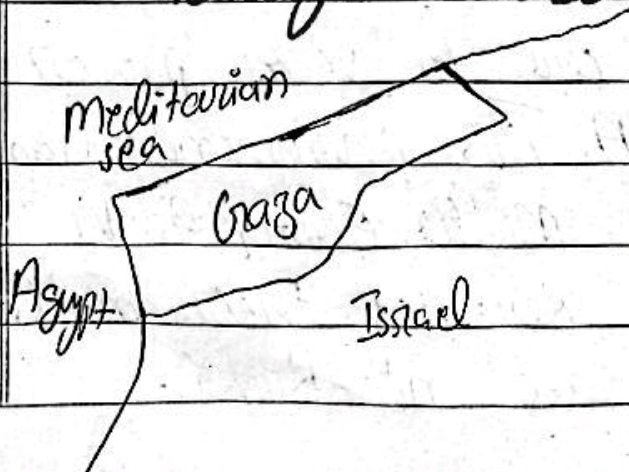 Meditarian
sea
Gaza
Agypt
Issrael